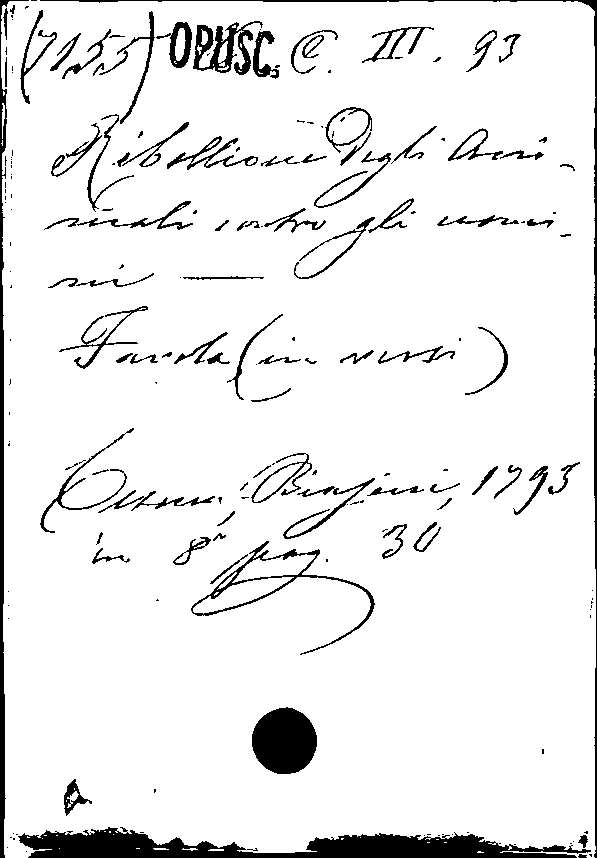 (7155) OPUSC. C. III. 93
Ribellione degli Ani-
mali contro gli uomi-
ni —
Favola (in versi)
Cesena, Biasini, 1793
in 8° pag. 30